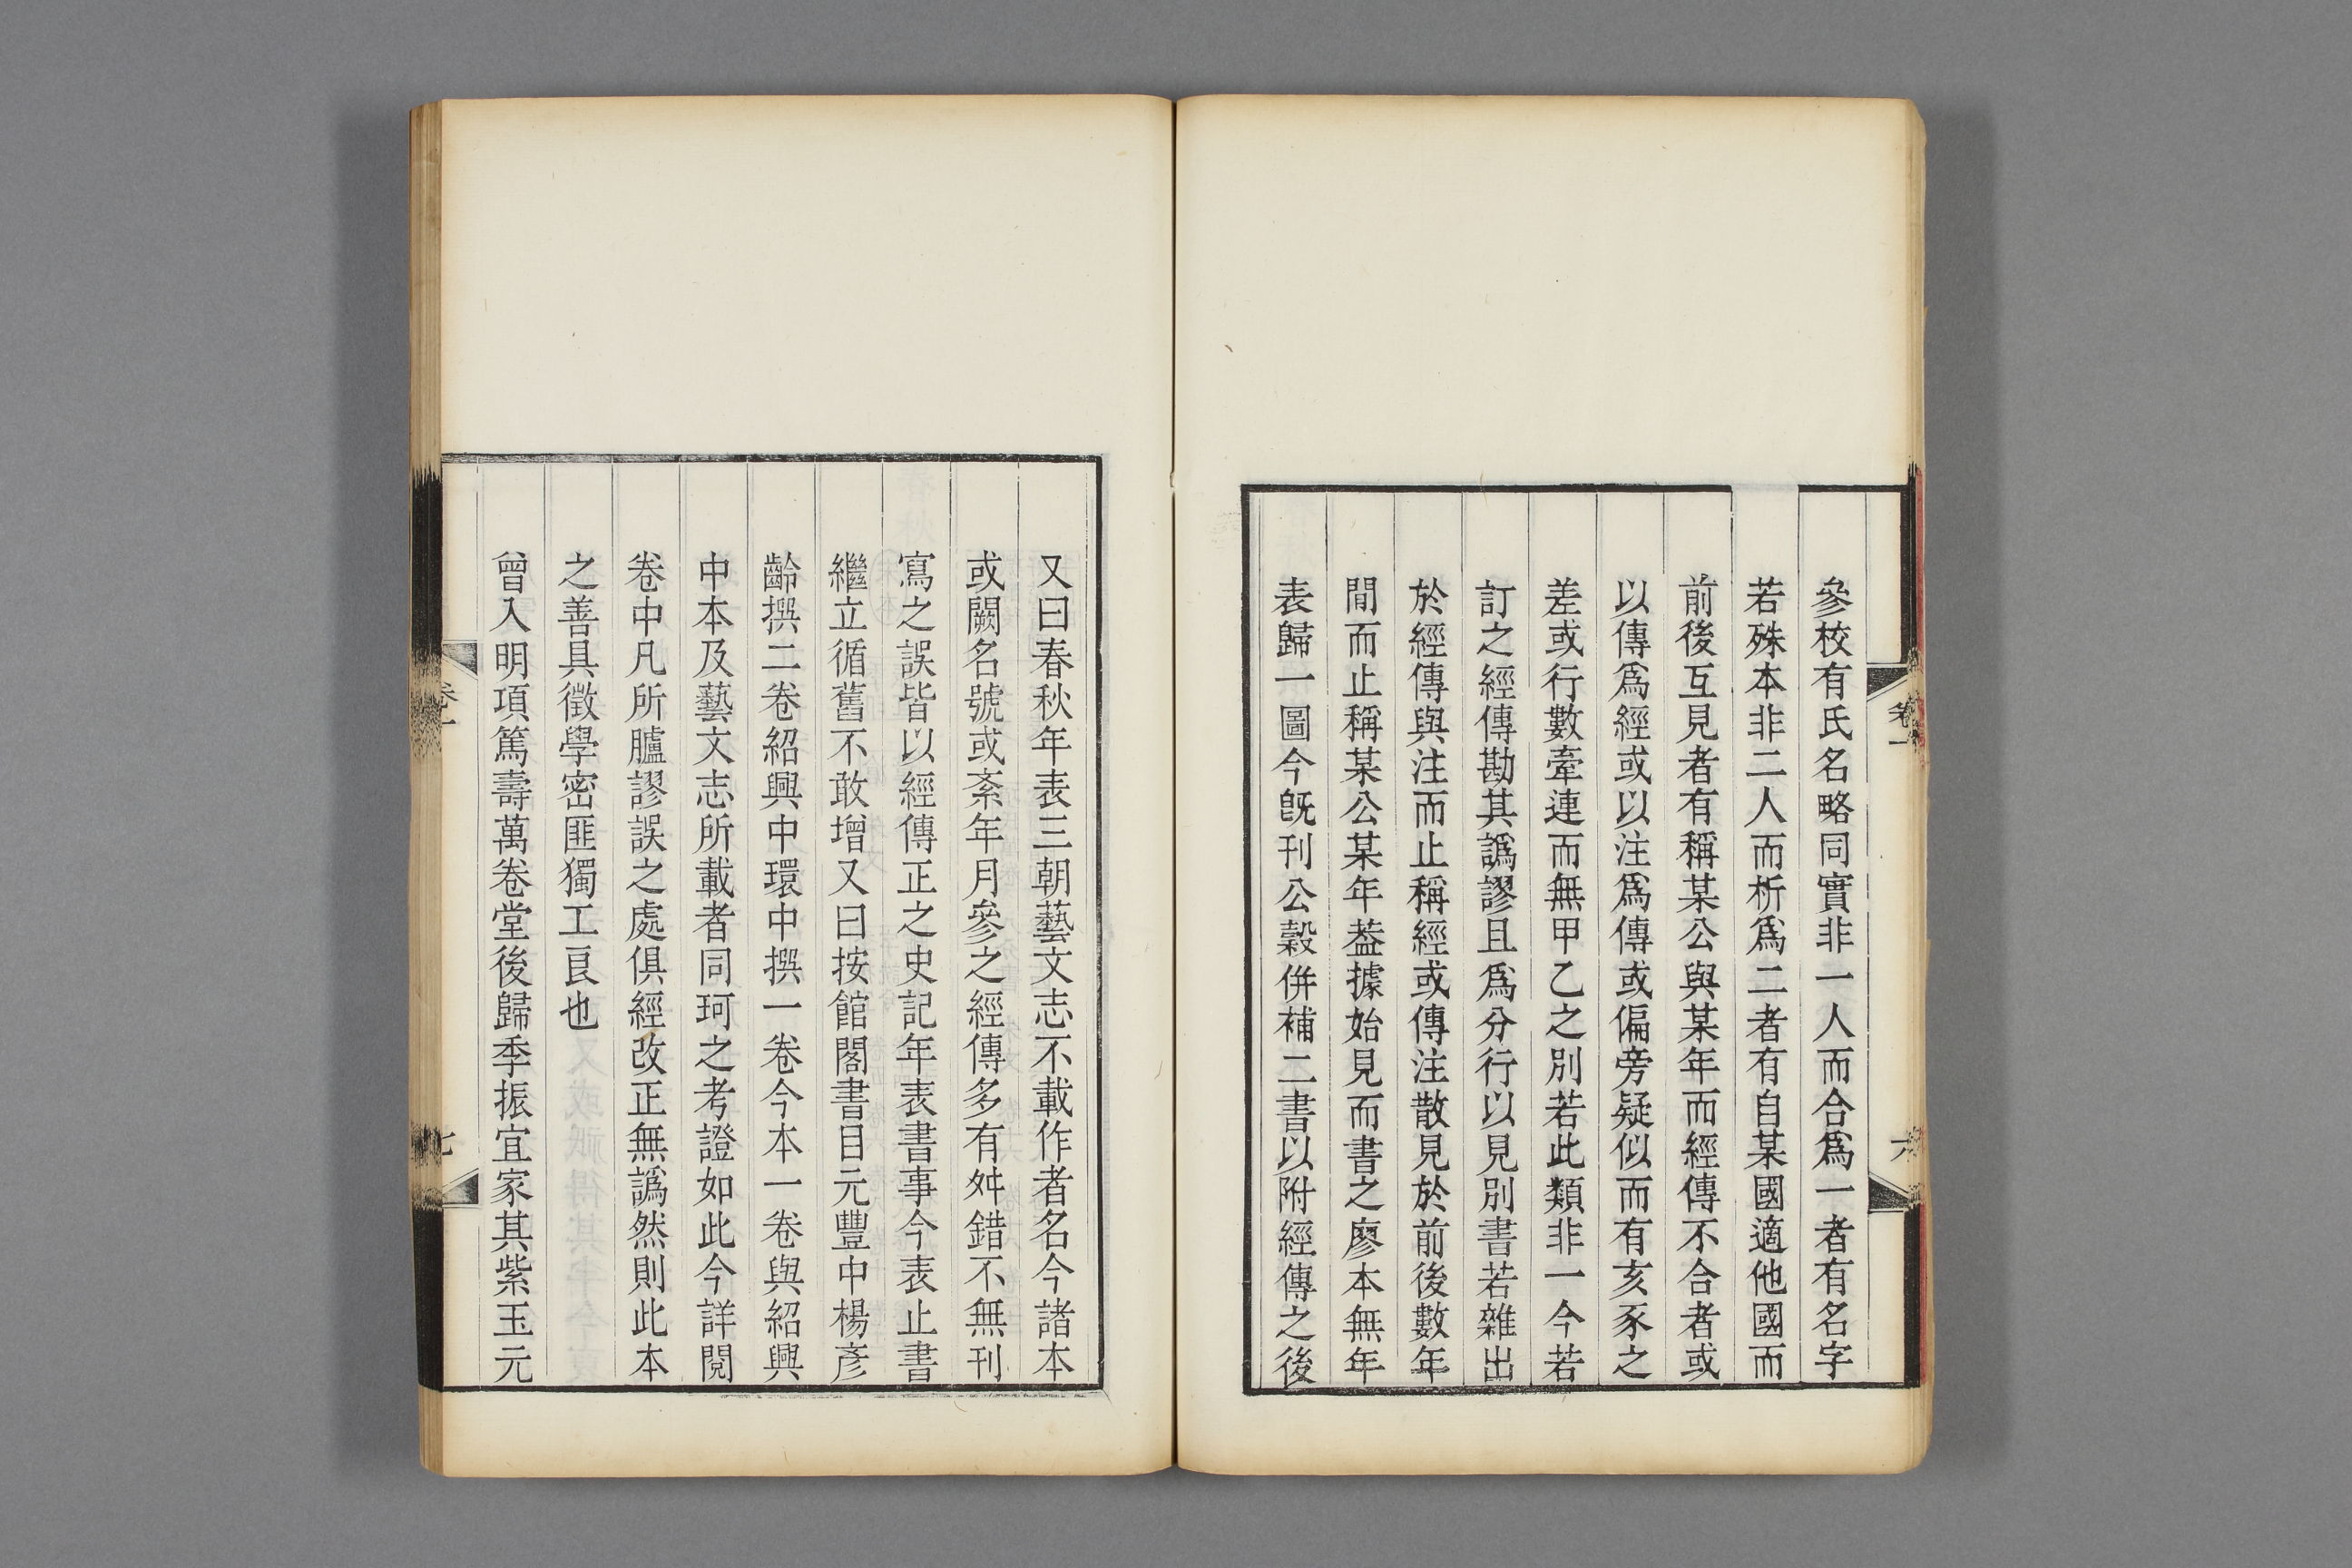 參校有氏名略同實非一人而合爲一者有名字
若殊本非二人而析爲二者有自某國適他國而
前後互見者有稱某公與某年而經傳不合者或
以傳爲經或以注爲傳或偏旁疑似而有亥豕之
差或行數牽連而無甲乙之別若此類非一今若
訂之經傳勘其譌謬且爲分行以見別書若雜出
於經傳與注而止稱經或傳注散見於前後數年
間而止稱某公某年葢據始見而書之廖本無年
表歸一圖今旣刊公穀併補二書以附經傳之後
卷一
六
又曰春秋年表三朝藝文志不載作者名今諸本
或闕名號或紊年月參之經傳多有舛錯不無刊
寫之誤皆以經傳正之史記年表書事今表止書
繼立循舊不敢增又曰按館閣書目元豐中楊彥
齡撰二卷紹興中環中撰一卷今本一卷與紹興
中本及藝文志所載者同珂之考證如此今詳閱
卷中凡所臚謬誤之處俱經改正無譌然則此本
之善具徵學密匪獨工良也
曾入明項篤壽萬卷堂後歸季振宜家其紫玉元
卷一
七